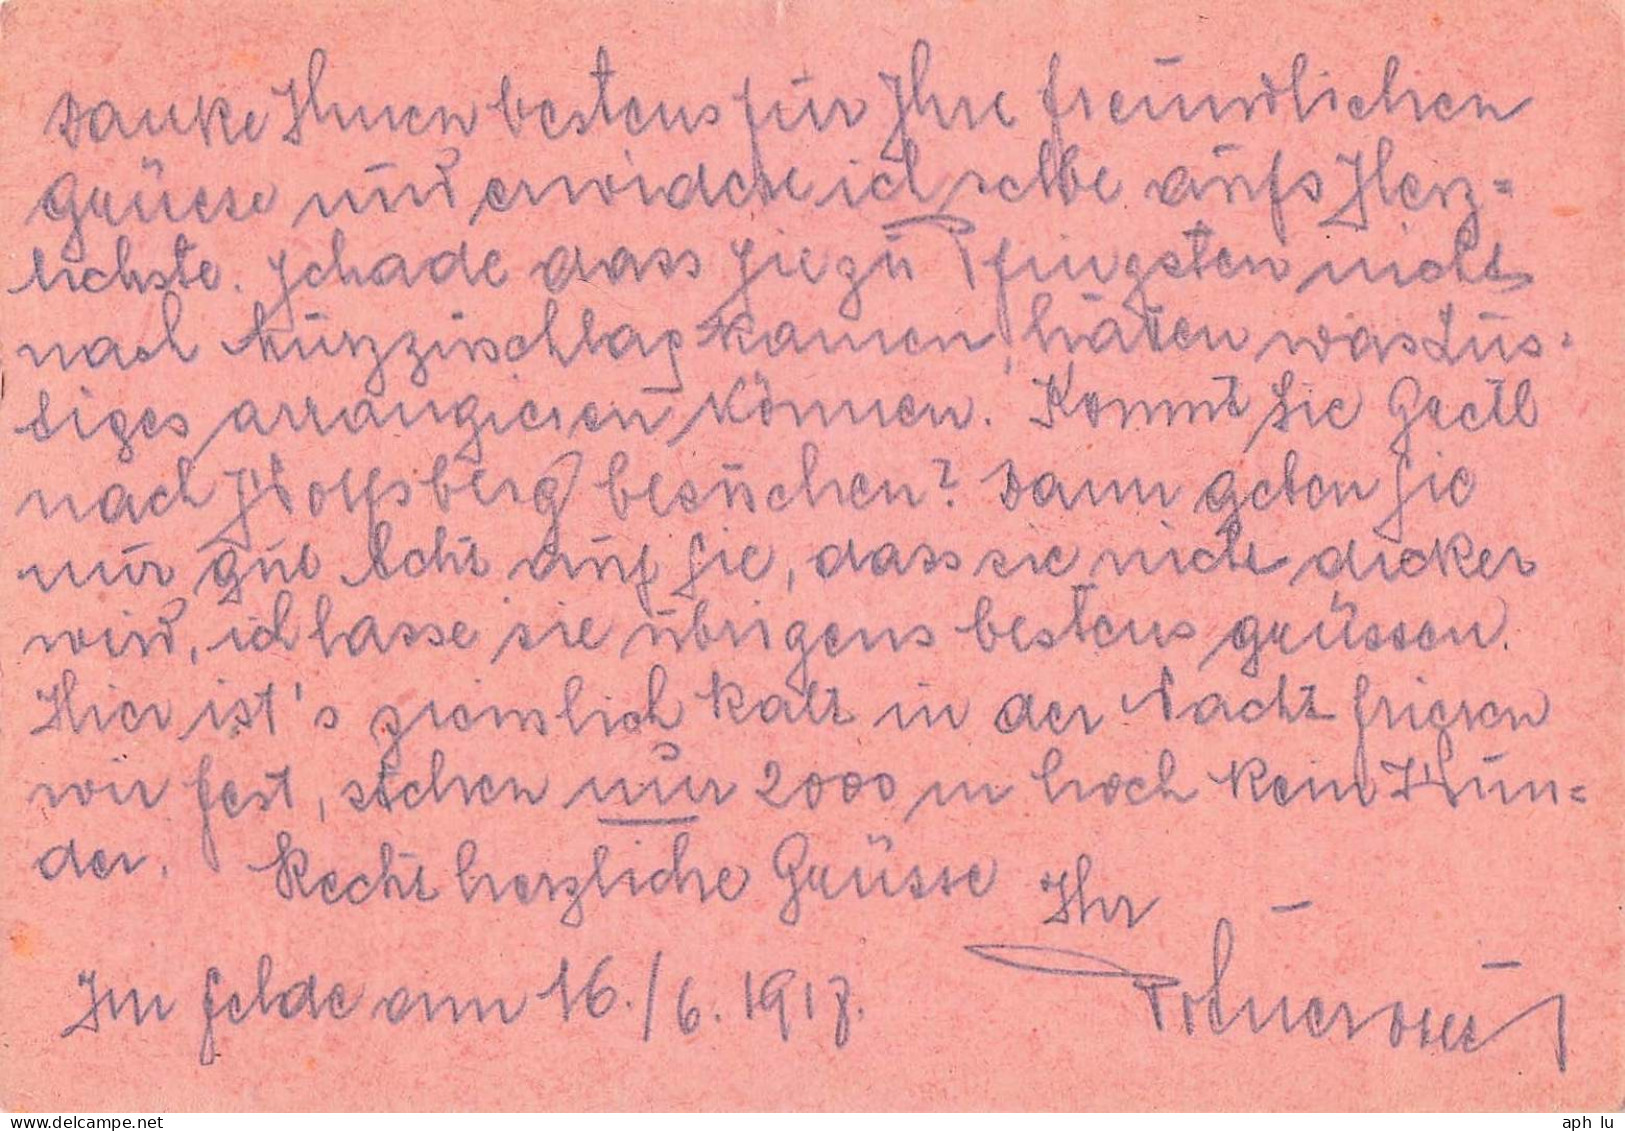 Danke Ihnen bestens für Ihre freundlichen
Grüesse und erwidere ich selbe aufs Herz=
lichste. Schade dass Sie zu Pfingsten nicht
nach Mürzzuschlag kamen, hätten was Lus=
tiges arrangieren können. Kommt Sie Gretl
nach Wolfsberg besuchen? Dann geben Sie
nur gut Acht auf Sie, dass sie nicht dicker
wird, ich lasse sie übrigens bestens grüssen.
Hier ist's ziemlich kalt in der Nacht frieren
wir fest, stehen nur 2000 m hoch kein Wun=
der. Recht herzliche Grüsse Ihr
Im Felde am 16./6. 1917.
aph_lu